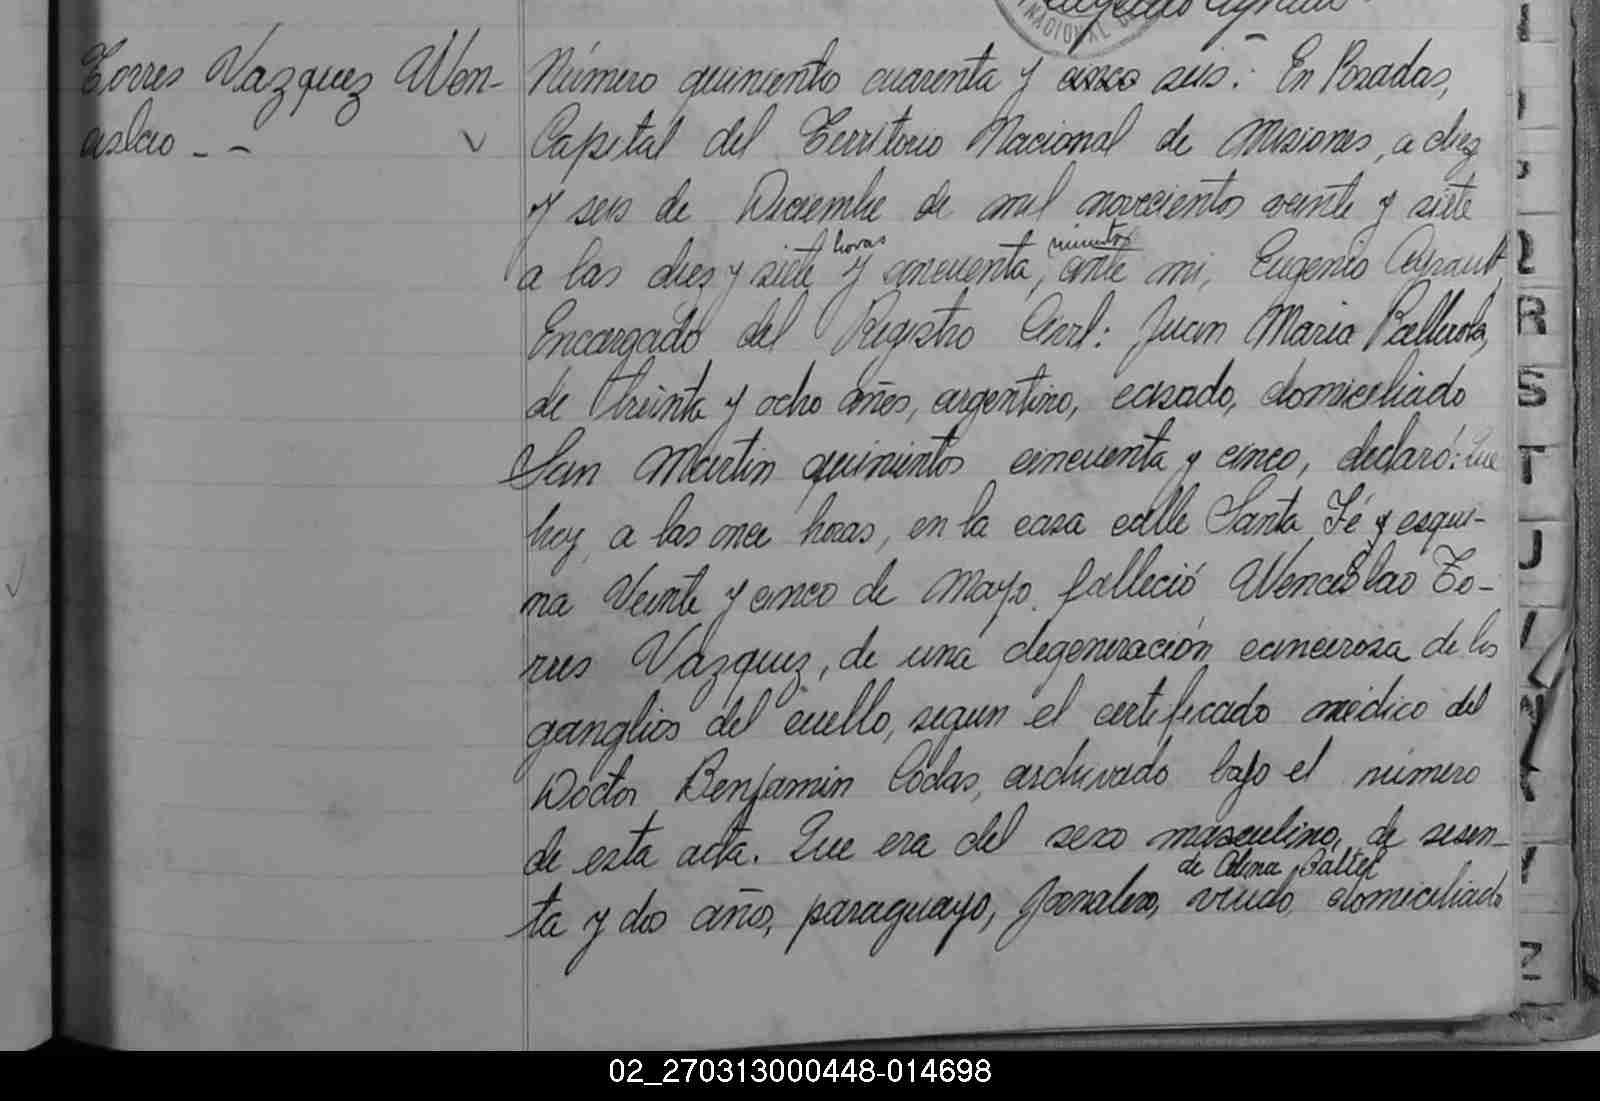 Eugenio Ayrault
NACIONAL
Torres Vazquez Wen-
aslao - -
Número quinientos cuarenta y cinco seis: En Posadas,
Capital del Territorio Nacional de Misiones, a diez
y seis de Diciembre de mil novecientos veinte y siete
a las diez y siete horas y cincuenta minutos, ante mi, Eugenio Ayrault,
Encargado del Registro Civil: Juan Maria
de treinta y ocho años, argentino, casado, domiciliado
San Martin quinientos cincuenta y cinco, declaró: Que
hoy, a las once horas, en la casa calle Santa Fé y esqui-
na Veinte y cinco de Mayo, falleció Wenceslao To-
rres Vazquez, de una degeneración cancerosa de los
ganglios del cuello, segun el certificado médico del
Doctor Benjamin Codas, archivado bajo el número
de esta acta. Que era del sexo masculino, de sesen-
ta y dos años, paraguayo, viudo de domiciliado
I
J
Q
R
S
T
U
V
Y
Z
02_270313000448-014698